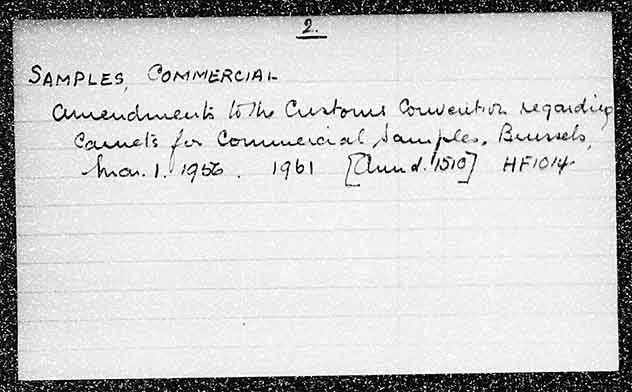 2.
SAMPLES, COMMERCIAL
Amendments to the Customs Convention regarding
Carnets for Commercial Samples, Brussels,
Mar. 1. 1956. 1961 [Cmnd. 1510] HF1014